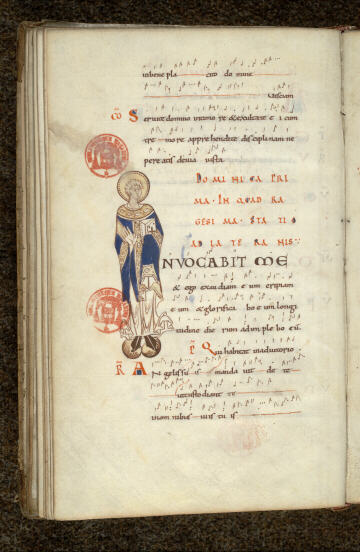 in bene pla cito do mine
Offeram
CO Servite domino in timo re & exultate e i cum
tre mo re appre hendite disciplinam ne
pere atis de via iusta
DO MI NI CA PRI
MA · IN QUAD RA
GESI MA · STA TI O
AD LA TE RA NIS
INVOCABIT ME
& ego exaudiam e um eripiam
e um & glorifica bo e um longi
tudine die rum adimple bo eum
P Qui habitat in adiutorio
R Angelis su is manda vit de te
ut custodiant te
in omnibus viis tu is